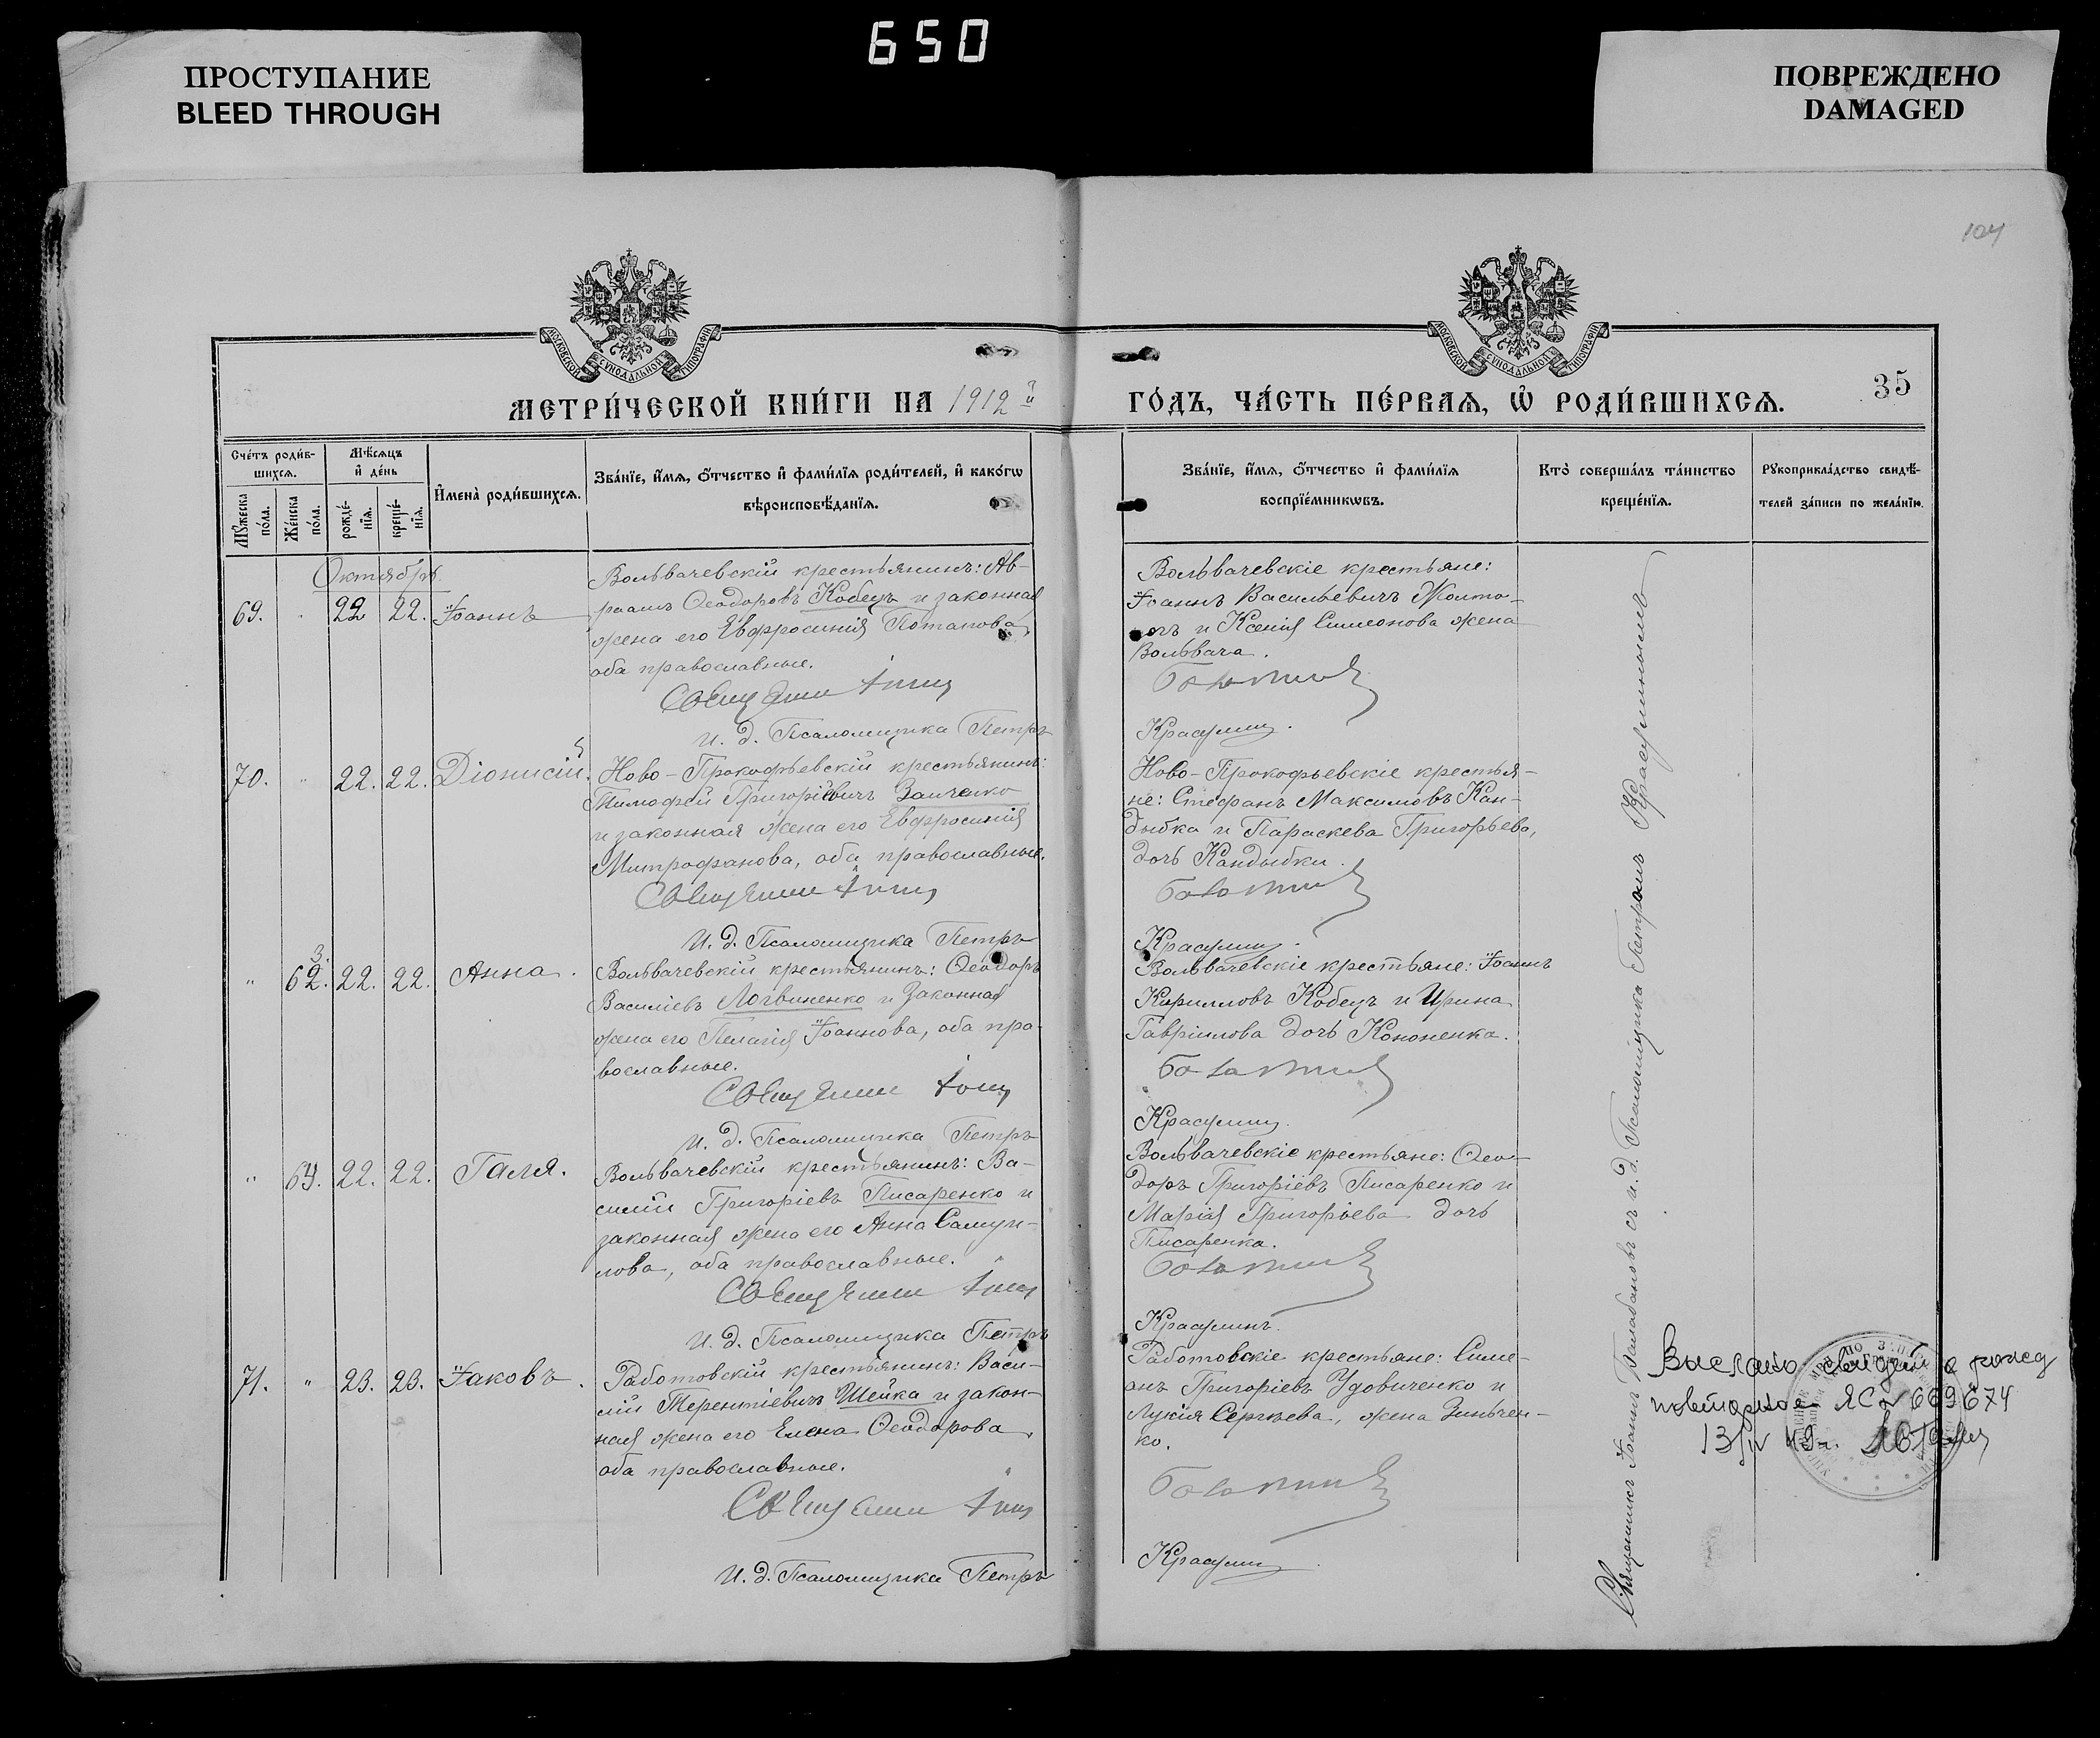 650
ПРОСТУПАНИЕ
BLEED THROUGH
ПОВРЕЖДЕНО
DAMAGED
104
МОСКОВСКОЙ СѴНОДАЛЬНОЙ ТИПОГРАФІИ
МОСКОВСКОЙ СѴНОДАЛЬНОЙ ТИПОГРАФІИ
МЕТРИ́ЧЕСКОЙ КНИ́ГИ НА 1912й
ГО́ДЪ, ЧА́СТЬ ПЕ́РВАѦ, Ѡ҆ РОДИ́ВШИХСѦ.
35
Сче́тъ роди́в-
шихсѧ.
Мꙋ́жеска по́ла.
Же́нска по́ла.
Мѣ́сѧцъ
и҆ де́нь
рожде́-
нїѧ.
креще́-
нїѧ.
И҆мена̀ роди́вшихсѧ.
Зва́нїе, и҆́мѧ, ѻ҆́тчество и҆ фами́лїѧ роди́телей, и҆ како́гѡ
вѣроисповѣ́данїѧ.
Зва́нїе, и҆́мѧ, ѻ҆́тчество и҆ фами́лїѧ
воспрїе́мникѡвъ.
Кто̀ соверша́лъ та́инство
креще́нїѧ.
Рꙋкоприкла́дство свидѣ́-
телей за́писи по жела́нїю.
Октября
69. " 22 22. Іоаннъ
Вольвачевскій крестьянинъ: Ав-
раамъ Ѳеодоровъ Кобецъ и законная
жена его Евфросинія Потапова,
оба православные.
Священникъ Іоаннъ
И. д. Псаломщика Петръ
Вольвачевскіе крестьяне:
Іоаннъ Васильевичъ Жолто-
и Ксенія Симеонова жена
Вольвача.
Балабановъ
Красулинъ.
70. " 22. 22. Діонисій.
Ново-Прокофьевскій крестьянинъ:
Тимофей Григоріевичъ Заиченко
и законная жена его Евфросинія
Митрофанова, оба православные.
Священникъ Іоаннъ
И. д. Псаломщика Петръ
Ново-Прокофьевскіе крестья-
не: Стефанъ Максимовъ Кан-
дыбка и Параскева Григорьева,
дочь Кандыбки.
Балабановъ
Красулинъ.
3.
" 62. 22. 22. Анна.
Вольвачевскій крестьянинъ: Ѳеодоръ
Василіевъ Логвиненко и законная
жена его Пелагія Іоаннова, оба пра-
вославные.
Священникъ Іоаннъ
И. д. Псаломщика Петръ
Вольвачевскіе крестьяне: Іоаннъ
Кирилловъ Кобецъ и Ирина
Гавріилова дочь Кононенка.
Балабановъ
Красулинъ.
" 64. 22. 22. Галя.
Вольвачевскій крестьянинъ: Ва-
силій Григоріевъ Писаренко и
законная жена его Анна Самуи-
лова, оба православные.
Священникъ Іоаннъ
И. д. Псаломщика Петръ
Вольвачевскіе крестьяне: Ѳео-
доръ Григоріевъ Писаренко и
Марія Григорьева дочь
Писаренка.
Балабановъ
Красулинъ.
71. " 23. 23. Іаковъ.
Работовскій крестьянинъ: Васи-
лій Терентіевичъ Шейка и закон-
ная жена его Елена Ѳеодорова,
оба православные.
Священникъ Іоаннъ
И. д. Псаломщика Петръ
Работовскіе крестьяне: Симе-
онъ Григоріевъ Удовиченко и
Лукія Сергѣева, жена Зинчен-
ко.
Балабановъ
Красулинъ
Священникъ Іоаннъ Балабановъ съ и. д. Псаломщика Петромъ Красулинымъ
Выслано свидет. о рожд
повторное ЯС № 669674